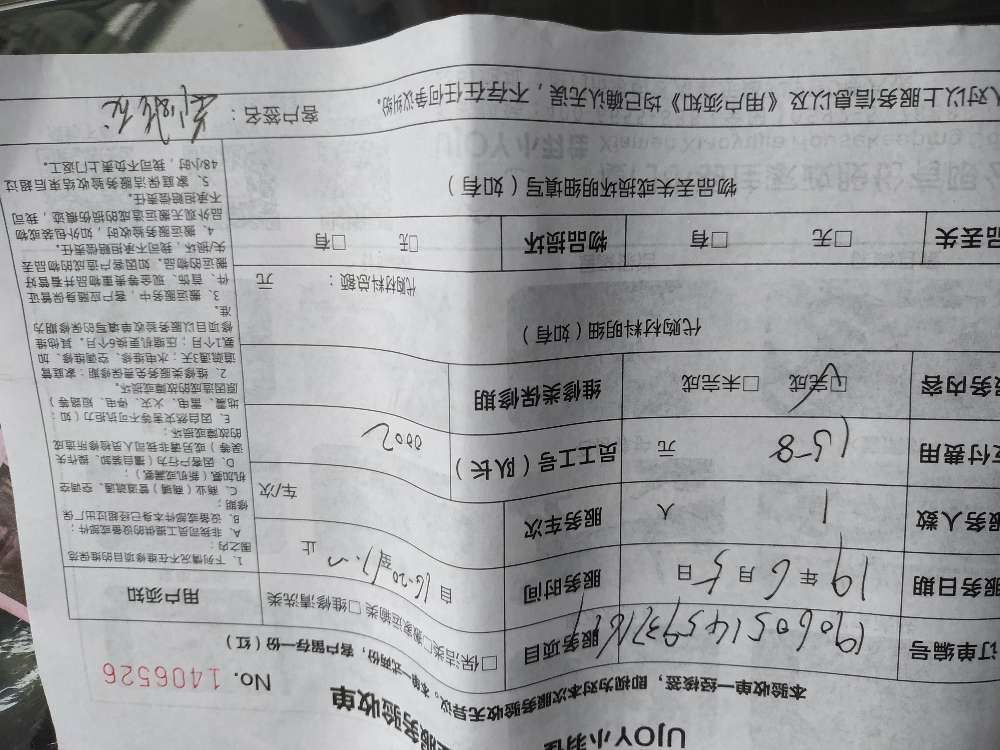 UJOY小羽佳
服务验收单
No. 1406526
本验收单一经核签，即视为对本次服务验收无异议。本单一式两份，客户留存一份（红）
订单编号
服务项目 □保洁类□搬家运输类 □维修清洗类
服务日期 19 年 6 月 5 日
服务时间 自 16:20 至 止
服务人数 1 人
服务车次 车/次
支付费用 158 元
员工工号（队长） 0002
服务内容 ☑完成 □未完成
维修类保修期
代购材料明细（如有）
代购材料总额： 元
品丢失 □无 □有
物品损坏 □无 □有
物品丢失或损坏明细填写（如有）
用户须知
1. 下列情况不在维修项目的维保范
围之内：
A. 非我司员工提供的设备或部件；
B. 设备或部件本身已经超过出厂保
修期；
C. 商业（商铺）管道疏通、空调空
机加氟（新机或漏氟）；
D. 因客户行为（擅自装卸、操作失
误等）或另请非我司人员检修所造成
的故障或损坏；
E. 因自然灾害等不可抗拒力（如：
地震、雷电、火灾、停电、短路等）
原因造成的故障或损坏。
2. 维修类服务免费保修期：家庭管
道疏通3天；水电维修、空调维修、加
氟1个月；压缩机更换6个月，其他维
修项目以服务验收单填写的保修期为
准。
3. 搬运服务中，客户应随身保管证
件、首饰、现金等贵重物品并看管好
搬运的物品，如因客户造成的物品丢
失/损坏，我司不承担赔偿责任。
4. 搬运服务验收时，如外包装或物
品外观无搬运造成的损伤痕迹，我司
不承担赔偿责任。
5. 家庭保洁服务验收结束后超过
48小时，我司不负责上门返工。
人对以上服务信息以及《用户须知》均已确认无误，不存在任何争议纠纷。
客户签名：